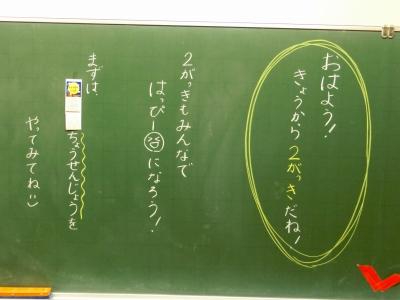 おはよう!
きょうから2がっきだね!
2がっきもみんなで
はっぴー☺になろう!
まずは、
ちょうせんじょうを
やってみてね:)